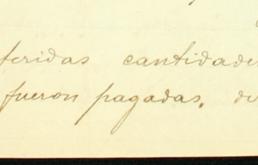 feridas cantidade
fueron pagadas, de